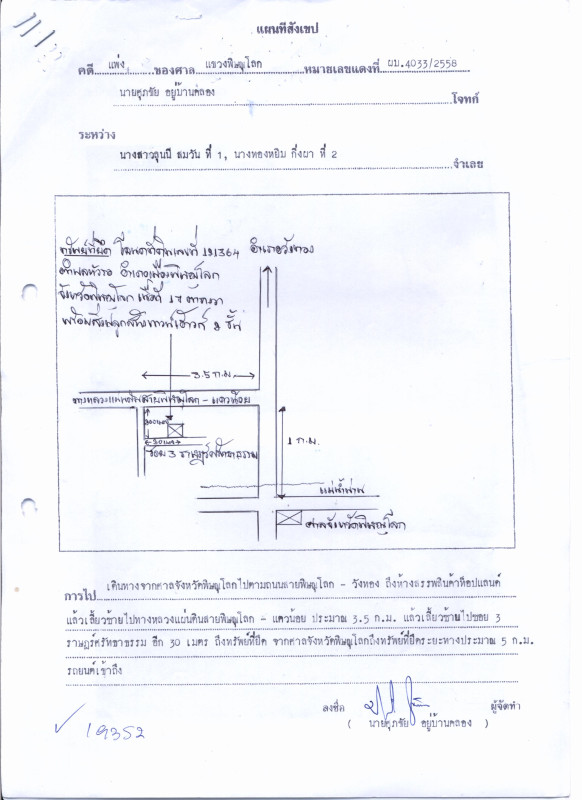 แผนที่สังเขป
คดี แพ่ง ของศาล แขวงพิษณุโลก หมายเลขแดงที่ ผบ.4033/2558
นายศุภชัย อยู่บ้านคลอง โจทก์
ระหว่าง
นางสาวจุนบี ธมวัน ที่ 1, นางทองหยิบ กิ่งผา ที่ 2 จำเลย
ทรัพย์ที่ยึด โฉนดที่ดินเลขที่ 191364
อำเภอวังทอง
ตำบลหัวรอ อำเภอเมืองพิษณุโลก
จังหวัดพิษณุโลก เนื้อที่ 17 ตารางวา
พร้อมสิ่งปลูกสร้างทาวน์เฮ้าส์ 2 ชั้น
3.5 ก.ม
ทางหลวงแผ่นดินสายพิษณุโลก - แควน้อย
ซอย 3 ราษฎร์ศรัทธาธรรม
1 ก.ม.
แม่น้ำน่าน
ศาลจังหวัดพิษณุโลก
การไป เดินทางจากศาลจังหวัดพิษณุโลกไปตามถนนสายพิษณุโลก - วังทอง ถึงห้างสรรพสินค้าท็อปแลนด์
แล้วเลี้ยวซ้ายไปทางหลวงแผ่นดินสายพิษณุโลก - แควน้อย ประมาณ 3.5 ก.ม. แล้วเลี้ยวซ้ายไปซอย 3
ราษฎร์ศรัทธาธรรม อีก 30 เมตร ถึงทรัพย์ที่ยึด จากศาลจังหวัดพิษณุโลกถึงทรัพย์ที่ยึดระยะทางประมาณ 5 ก.ม.
รถยนต์เข้าถึง
ลงชื่อ ผู้จัดทำ
( นายศุภชัย อยู่บ้านคลอง )
19352